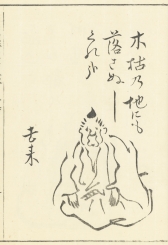 木枯乃地にも
落さぬし
くれ哉
去来